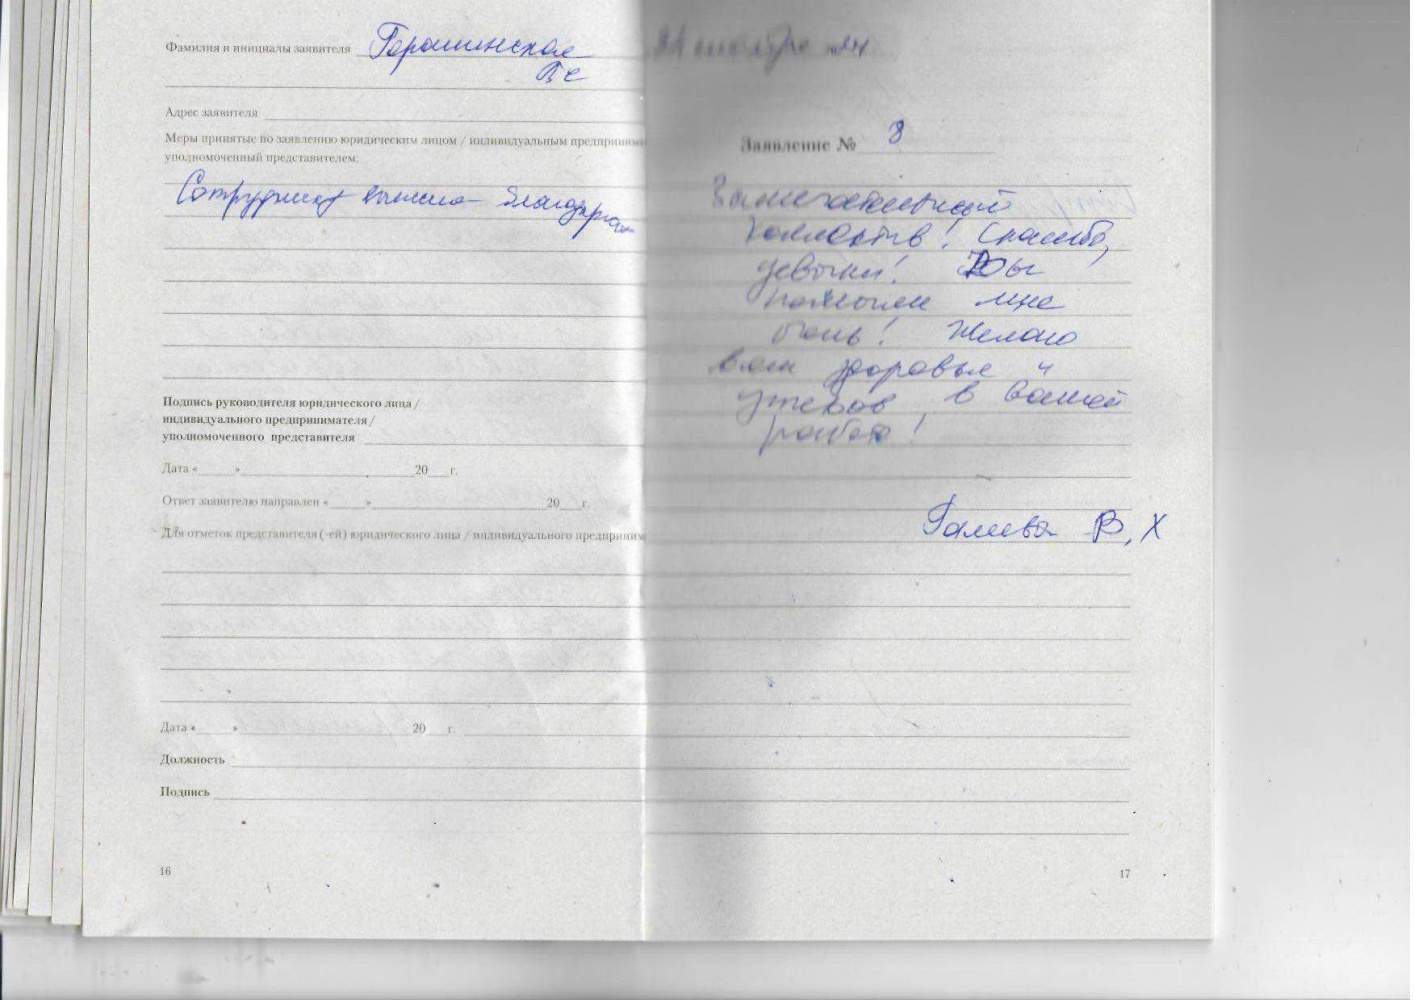 Фамилия и инициалы заявителя
Адрес заявителя
Меры принятые по заявлению юридическим лицом / индивидуальным предприним
уполномоченный представителем:
Сотруднику вынесена благодарность
Подпись руководителя юридического лица /
индивидуального предпринимателя /
уполномоченного представителя
Дата « » 20 г.
Ответ заявителю направлен « » 20 г.
Для отметок представителя (-ей) юридического лица / индивидуального предприним
Дата « » 20 г.
Должность
Подпись
16
Заявление № 8
Замечательный
коллектив! Спасибо,
девочки!
помогли мне
очень! Желаю
вам здоровья и
успехов в вашей
работе!
В, Х
17